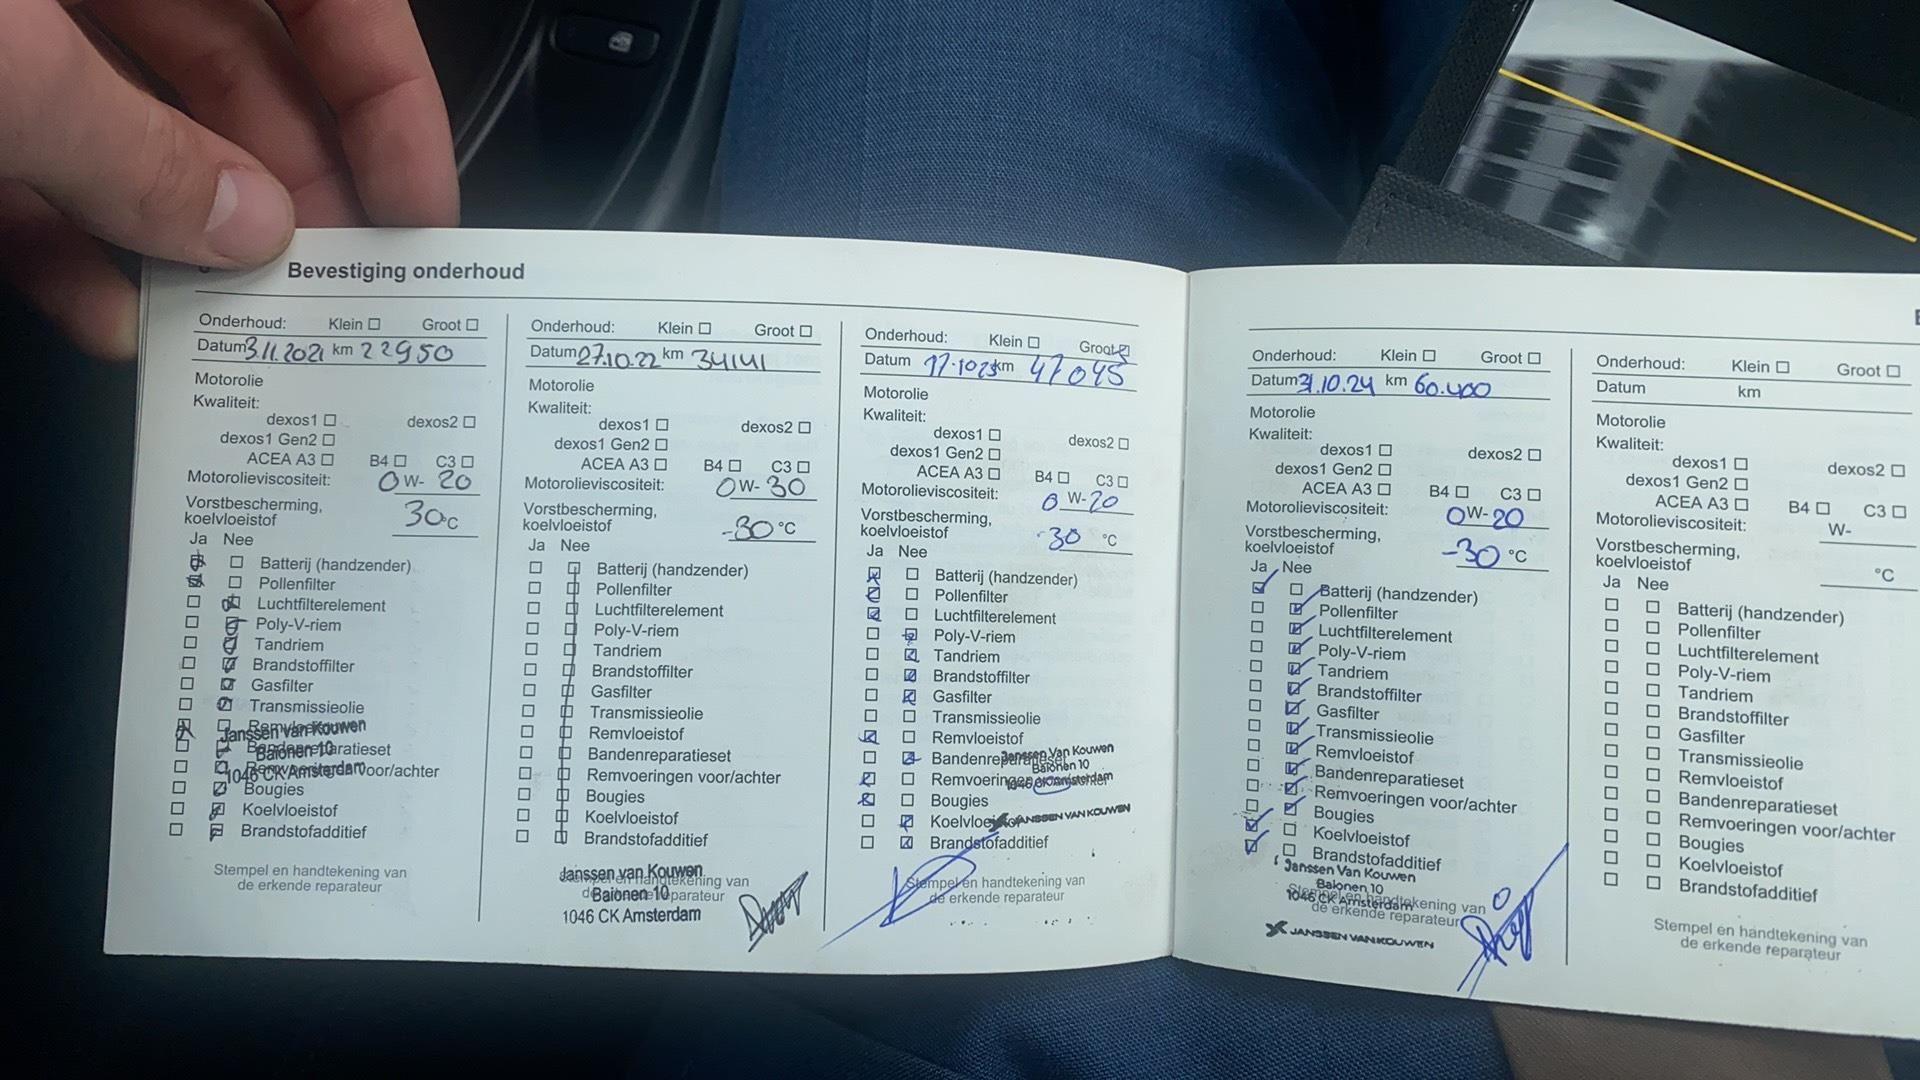 Bevestiging onderhoud
Onderhoud: Klein ☐ Groot ☐
Datum 3.11.2021 km 22950
Motorolie
Kwaliteit:
dexos1 ☐ dexos2 ☐
dexos1 Gen2 ☐
ACEA A3 ☐ B4 ☐ C3 ☐
Motorolieviscositeit: 0 W- 20
Vorstbescherming,
koelvloeistof 30 °C
Ja Nee
Batterij (handzender)
Pollenfilter
Luchtfilterelement
Poly-V-riem
Tandriem
Brandstoffilter
Gasfilter
Transmissieolie
Remvloeistof
Janssen van Kouwen
Bandenreparatieset
Balonen 10
Remvoeringen voor/achter
1046 CK Amsterdam
Bougies
Koelvloeistof
Brandstofadditief
Stempel en handtekening van
de erkende reparateur
Onderhoud: Klein ☐ Groot ☐
Datum 27.10.22 km 34141
Motorolie
Kwaliteit:
dexos1 ☐ dexos2 ☐
dexos1 Gen2 ☐
ACEA A3 ☐ B4 ☐ C3 ☐
Motorolieviscositeit: 0 W- 30
Vorstbescherming,
koelvloeistof -30 °C
Ja Nee
Batterij (handzender)
Pollenfilter
Luchtfilterelement
Poly-V-riem
Tandriem
Brandstoffilter
Gasfilter
Transmissieolie
Remvloeistof
Bandenreparatieset
Remvoeringen voor/achter
Bougies
Koelvloeistof
Brandstofadditief
Janssen van Kouwen
Stempel en handtekening van
Balonen 10
de erkende reparateur
1046 CK Amsterdam
Onderhoud: Klein ☐ Groot ☑
Datum 17.10.23 km 47045
Motorolie
Kwaliteit:
dexos1 ☐ dexos2 ☐
dexos1 Gen2 ☐
ACEA A3 ☐ B4 ☐ C3 ☐
Motorolieviscositeit: 0 W- 20
Vorstbescherming,
koelvloeistof -30 °C
Ja Nee
Batterij (handzender)
Pollenfilter
Luchtfilterelement
Poly-V-riem
Tandriem
Brandstoffilter
Gasfilter
Transmissieolie
Remvloeistof
Janssen Van Kouwen
Bandenreparatieset
Balonen 10
Remvoeringen voor/achter
1046 CK Amsterdam
Bougies
Koelvloeistof
JANSSEN VAN KOUWEN
Brandstofadditief
Stempel en handtekening van
de erkende reparateur
Onderhoud: Klein ☐ Groot ☐
Datum 31.10.24 km 60.400
Motorolie
Kwaliteit:
dexos1 ☐ dexos2 ☐
dexos1 Gen2 ☐
ACEA A3 ☐ B4 ☐ C3 ☐
Motorolieviscositeit: 0 W- 20
Vorstbescherming,
koelvloeistof -30 °C
Ja Nee
Batterij (handzender)
Pollenfilter
Luchtfilterelement
Poly-V-riem
Tandriem
Brandstoffilter
Gasfilter
Transmissieolie
Remvloeistof
Bandenreparatieset
Remvoeringen voor/achter
Bougies
Koelvloeistof
Brandstofadditief
Janssen Van Kouwen
Balonen 10
Stempel en handtekening van
1046 CK Amsterdam
de erkende reparateur
JANSSEN VAN KOUWEN
Onderhoud: Klein ☐ Groot ☐
Datum km
Motorolie
Kwaliteit:
dexos1 ☐ dexos2 ☐
dexos1 Gen2 ☐
ACEA A3 ☐ B4 ☐ C3 ☐
Motorolieviscositeit: W-
Vorstbescherming,
koelvloeistof °C
Ja Nee
Batterij (handzender)
Pollenfilter
Luchtfilterelement
Poly-V-riem
Tandriem
Brandstoffilter
Gasfilter
Transmissieolie
Remvloeistof
Bandenreparatieset
Remvoeringen voor/achter
Bougies
Koelvloeistof
Brandstofadditief
Stempel en handtekening van
de erkende reparateur